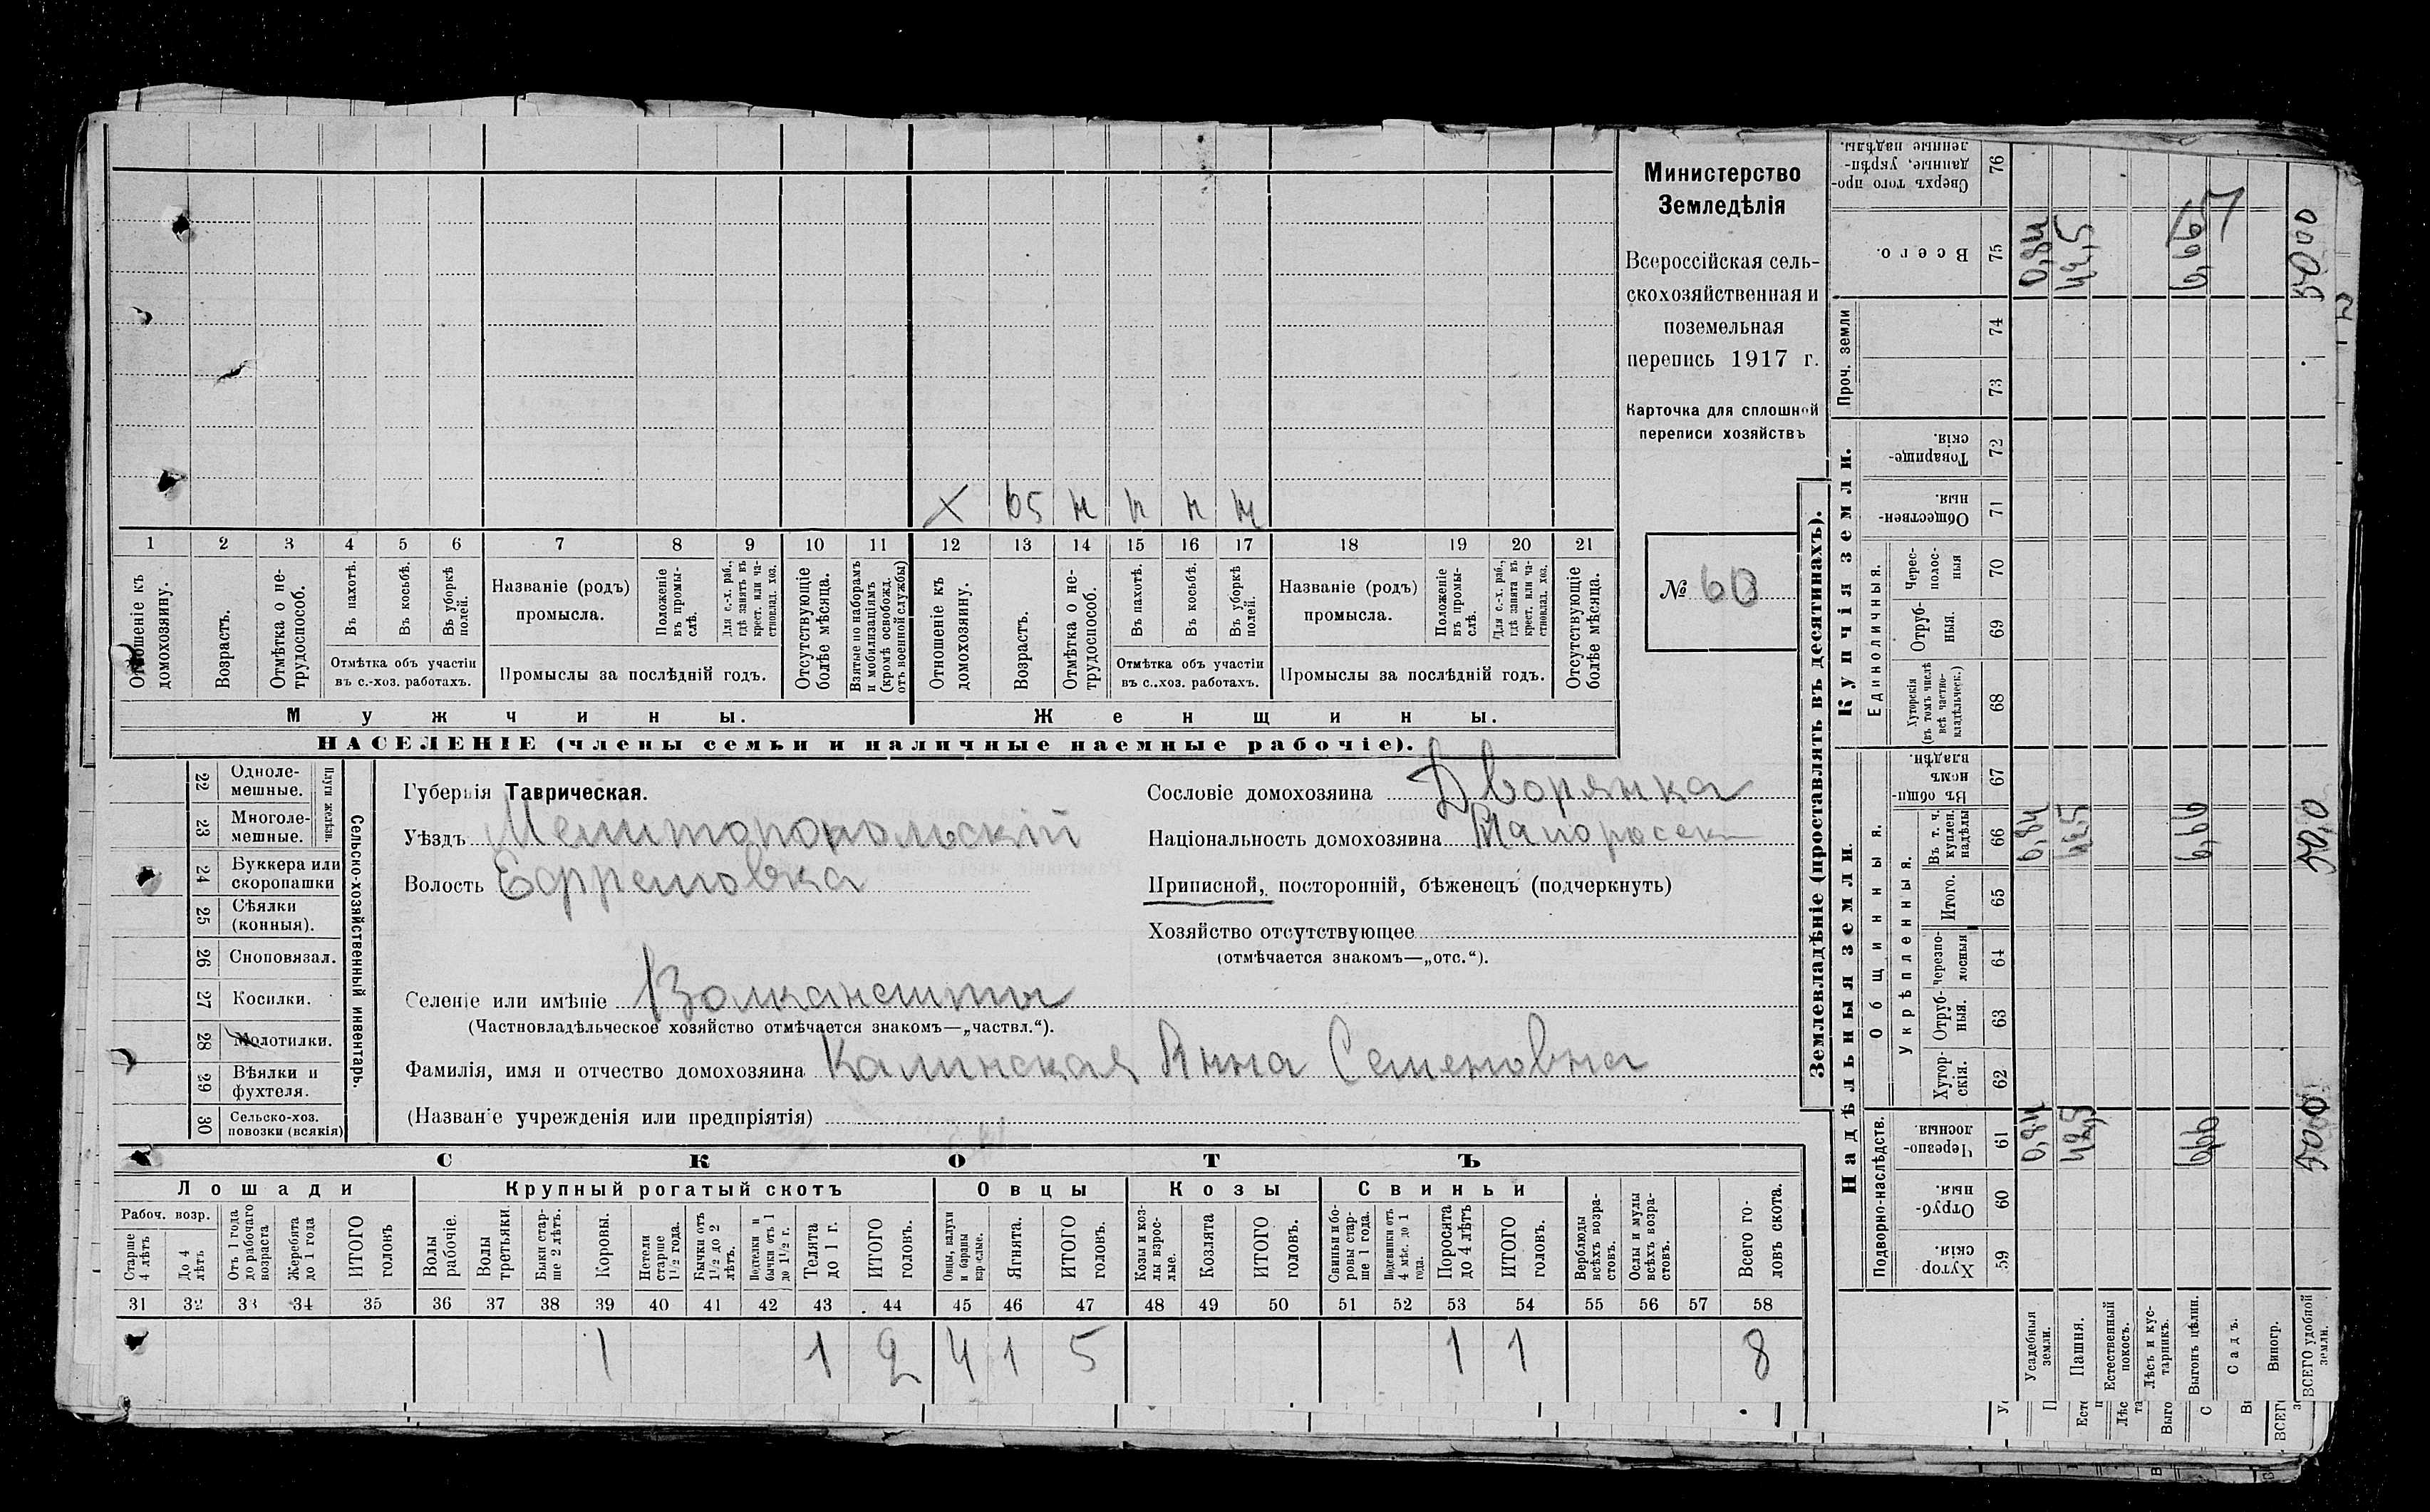 Министерство
Земледѣлія
Всероссійская сель-
скохозяйственная и
поземельная
перепись 1917 г.
Карточка для сплошной
переписи хозяйствъ
№ 60
Х 65 н н н н
1 2 3 4 5 6 7 8 9 10 11 12 13 14 15 16 17 18 19 20 21
Отношеніе къ домохозяину.
Возрастъ.
Отмѣтка о не-трудоспособ.
Въ пахотѣ.
Въ косьбѣ.
Въ уборкѣ полей.
Отмѣтка объ участіи
въ с.-хоз. работахъ.
Названіе (родъ)
промысла.
Положеніе въ промы-слѣ.
Для с.-х. раб., гдѣ занятъ въ крест. или ча-стновлад. хоз.
Промыслы за послѣдній годъ.
Отсутствующіе болѣе мѣсяца.
Взятые по наборамъ и мобилизаціямъ (кромѣ освобожд. отъ военной службы)
Отношеніе къ домохозяину.
Возрастъ.
Отмѣтка о не-трудоспособ.
Въ пахотѣ.
Въ косьбѣ.
Въ уборкѣ полей.
Отмѣтка объ участіи
въ с.-хоз. работахъ.
Названіе (родъ)
промысла.
Положеніе въ промы-слѣ.
Для с.-х. раб., гдѣ занята въ крест. или ча-стновлад. хоз.
Промыслы за послѣдній годъ.
Отсутствующіе болѣе мѣсяца.
Мужчины.
Женщины.
НАСЕЛЕНІЕ (члены семьи и наличные наемные рабочіе).
22 Одноле-мешные.
23 Многоле-мешные.
Плуги желѣзн.
24 Буккера или скоропашки
25 Сѣялки (конныя).
26 Сноповязал.
27 Косилки.
28 Молотилки.
29 Вѣялки и фухтеля.
30 Сельско-хоз. повозки (всякія)
Сельско-хозяйственный инвентарь.
Губернія Таврическая.
Уѣздъ Мелитопопольскій
Волость Ефремовка
Селеніе или имѣніе
(Частновладѣльческое хозяйство отмѣчается знакомъ—„частвл.“).
Фамилія, имя и отчество домохозяина Калинская Анна Семеновна
(Названіе учрежденія или предпріятія)
Сословіе домохозяина Дворянка
Національность домохозяина Малоросск
Приписной, посторонній, бѣженецъ (подчеркнуть)
Хозяйство отсутствующее
(отмѣчается знакомъ—„отс.“).
СКОТЪ
Лошади
Крупный рогатый скотъ
Овцы
Козы
Свиньи
Рабоч. возр.
Старше 4 лѣтъ
До 4 лѣтъ
Отъ 1 года до рабочаго возраста
Жеребята до 1 года
ИТОГО головъ
Волы рабочіе.
Волы третьяки.
Быки стар-ше 2 лѣтъ.
Коровы.
Нетели старше 1½ года.
Бычки отъ 1½ до 2 лѣтъ.
Подтелки и бычки отъ 1 до 1½ г.
Телята до 1 г.
ИТОГО головъ.
Овцы, валухи и бараны взрослые.
Ягнята.
ИТОГО головъ.
Козы и коз-лы взрос-лые.
Козлята
ИТОГО головъ.
Свиньи и бо-ровы стар-ше 1 года.
Подсвинки отъ 4 мѣс. до 1 года.
Поросята до 4 лѣтъ
ИТОГО головъ.
Верблюды всѣхъ возра-стовъ.
Ослы и мулы всѣхъ возра-стовъ.
Всего го-ловъ скота.
31 32 33 34 35 36 37 38 39 40 41 42 43 44 45 46 47 48 49 50 51 52 53 54 55 56 57 58
1 1 2 4 1 5 1 1 8
Землевладѣніе (проставлять въ десятинахъ).
Надѣльныя земли.
Купчія земли.
Проч. земли
Подворно-наслѣдств.
Общинныя.
Укрѣпленныя.
Единоличныя.
Хутор скія. 59
Отруб-ныя. 60
Черезпо-лосныя. 61
Хутор-скія. 62
Отруб-ныя. 63
Черезпо-лосныя 64
Итого. 65
Въ т. ч. куплен. надѣлы 66
Въ общи-нномъ владѣн. 67
Хуторскія (въ томъ числѣ всѣ частно-владѣльческ.) 68
Отруб-ныя. 69
Черес-полос-ныя 70
Обществен-ныя. 71
Товарище-скія. 72
73
74
Всего. 75
Сверхъ того про-данные, укрѣп-ленные надѣлы. 76
Усадебныя земли. 0,84 0,84 0,84
Пашня. 42,5 42,5 42,5
Естественный покосъ.
Лѣсъ и кус-тарникъ.
Выгонъ цѣлин. 6,66 6,66 6,66
Садъ.
Виногр.
ВСЕГО удобной земли. 50,00 50,0 50,00